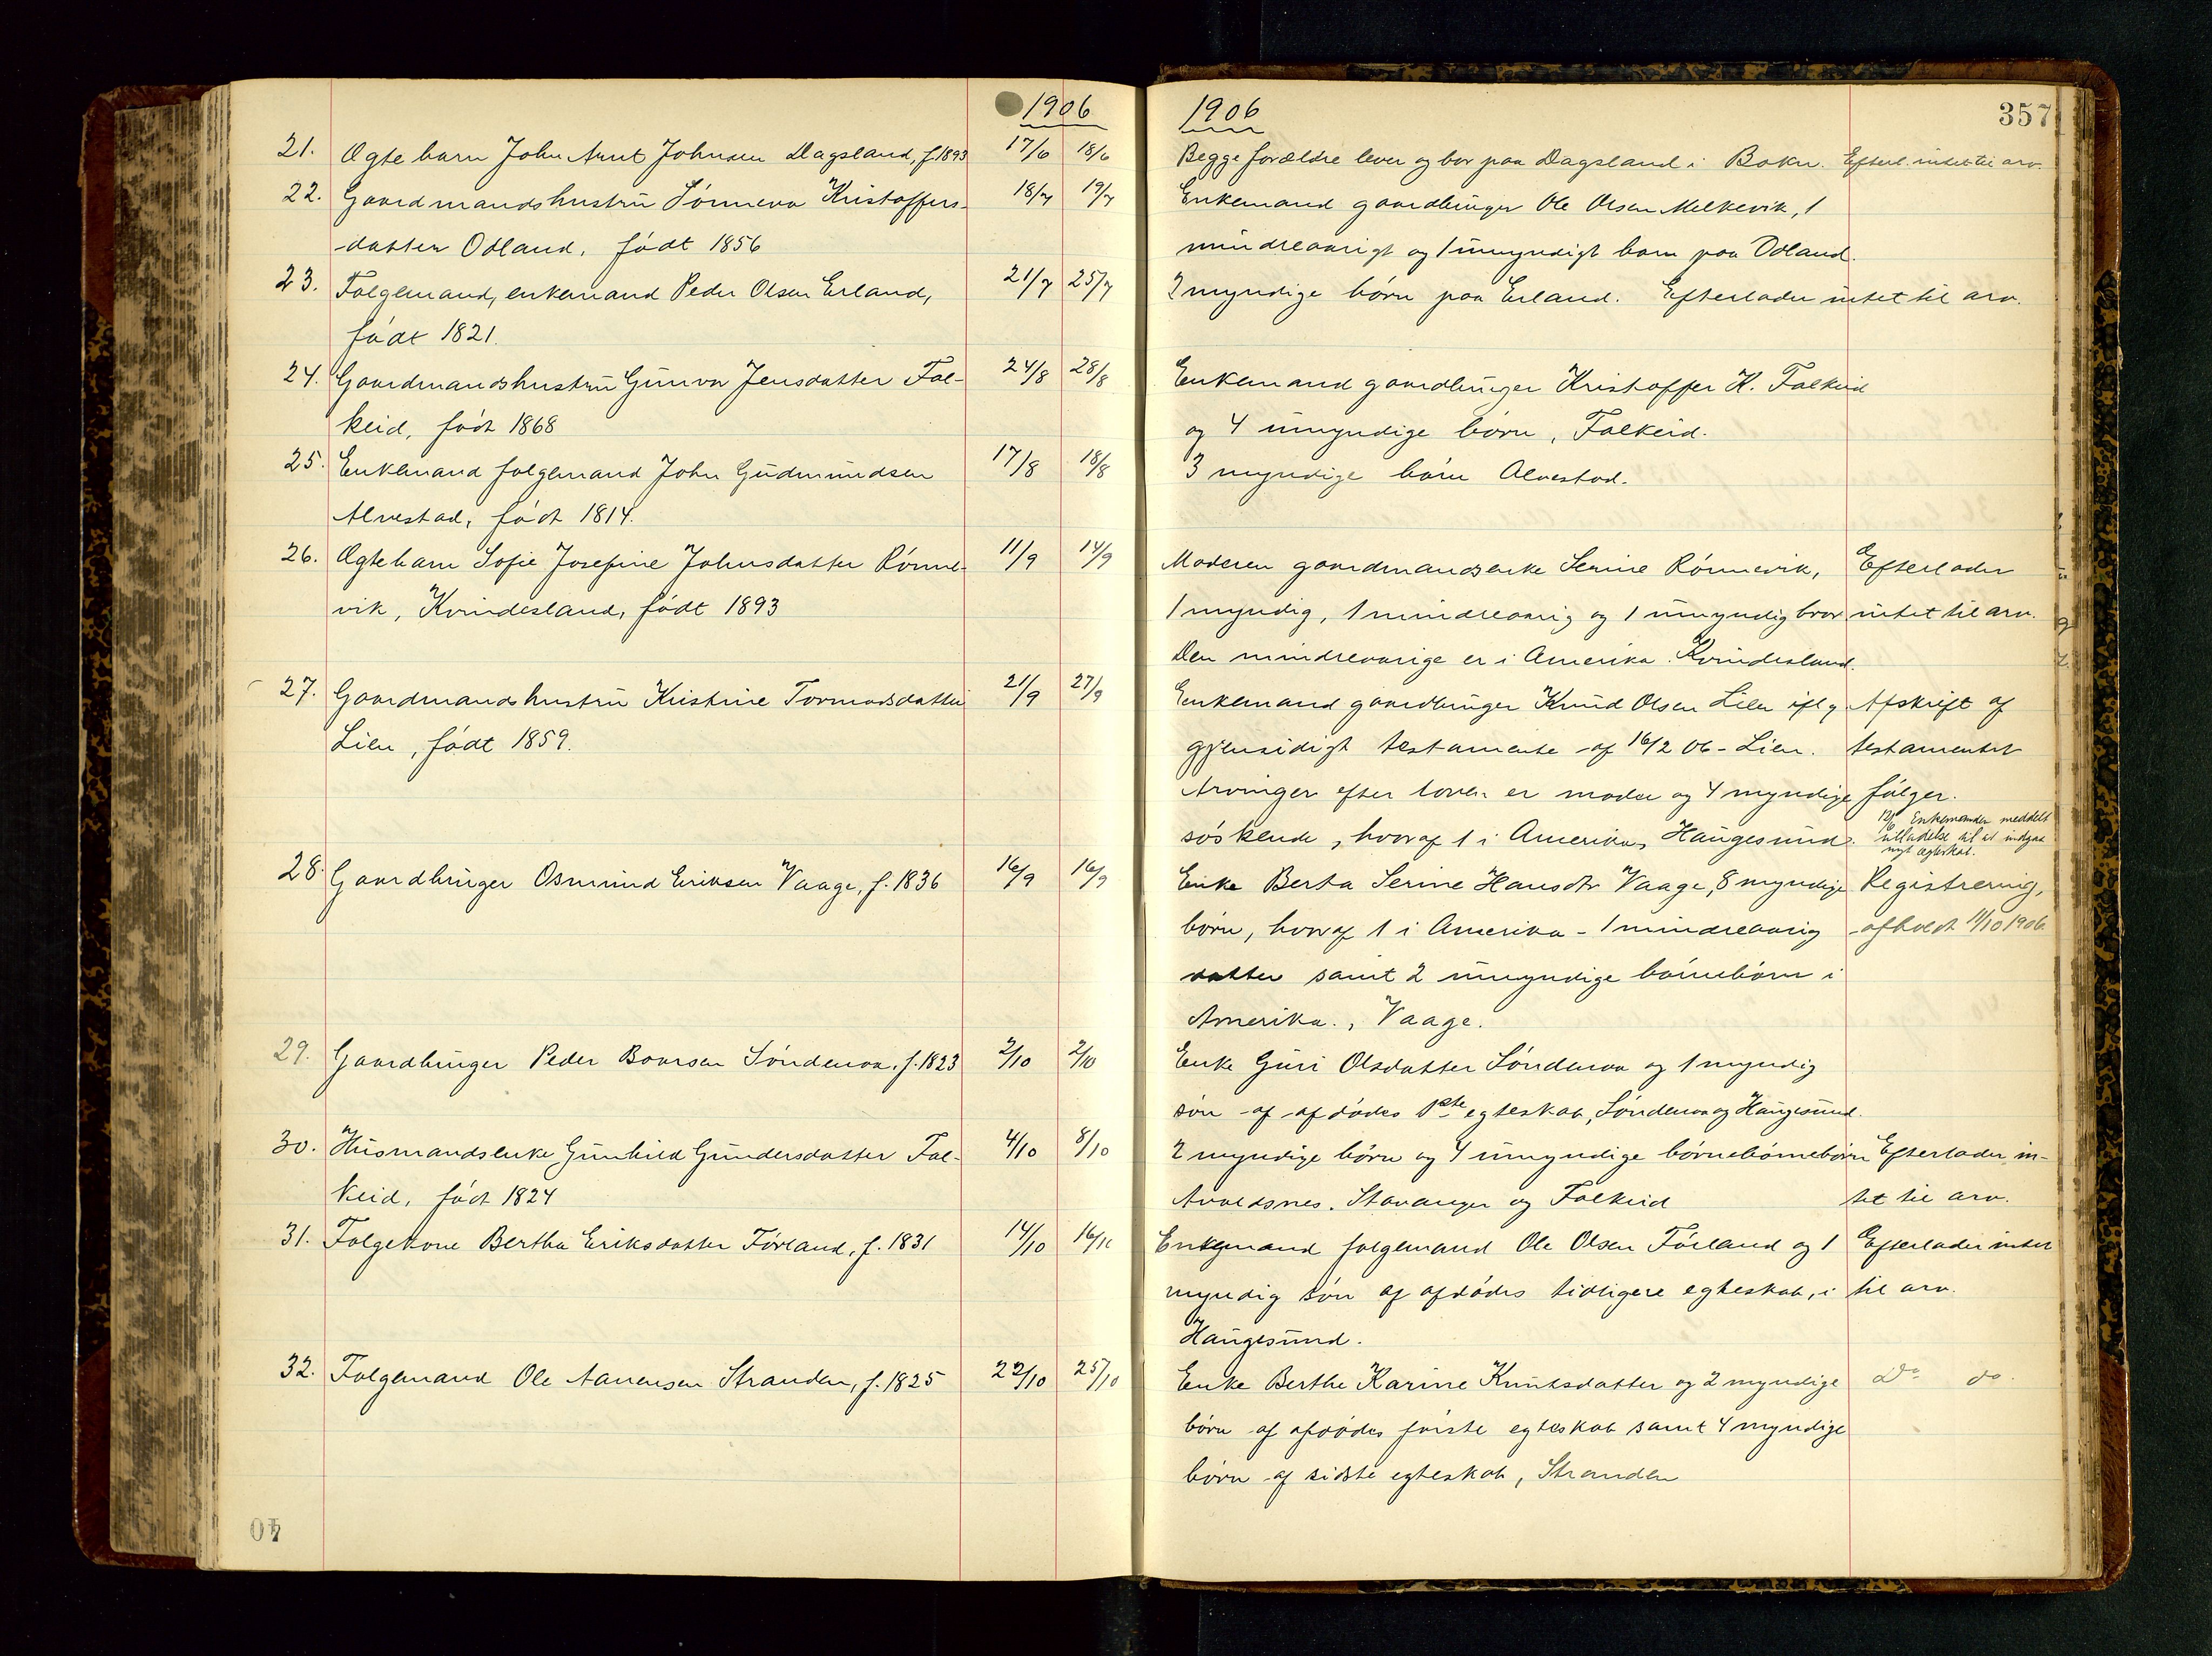 1906
21. Ægte barn John Arnt Johnsen Dagsland, f. 1893 17/6 18/6
22. Gaardmandshustru Sønneva Kristoffers-
datter Odland, født 1856 18/7 19/7
23. Folgemand, enkemand Peder Olsen Erland, 21/7 25/7
født 1821.
24. Gaardmandshustru Gunvor Jensdatter Fal- 24/8 28/8
keid, født 1868
25. Enkemand folgemand John Gudmundsen 17/8 18/8
Alvestad, født 1814.
26. Ægtebarn Sofie Josefine Johnsdatter Rønne- 11/9 14/9
vik, Kvindesland, født 1893
27. Gaardmandshustru Kristine Tormodsdatter 21/9 27/9
Lien, født 1859.
28. Gaardbruger Osmund Eriksen Vaage, f. 1836 16/9 16/9
29. Gaardbruger Peder Baarsen Søndenaa, f. 1823 2/10 2/10
30. Husmandsenke Gunhild Gundersdatter Fal- 4/10 8/10
keid, født 1824
31. Folgekone Bertha Eriksdatter Førland, f. 1831 14/10 16/10
32. Folgemand Ole Aanensen Stranden, f. 1825 22/10 25/10
40
1906 357
Begge forældre lever og bor paa Dagsland i Bokn. Efterl. intet til arv.
Enkemand gaardbruger Ole Olsen Melkevik, 1
mindreaarigt og 1 umyndigt barn paa Odland.
2 myndige børn paa Erland. Efterlader intet til arv.
Enkemand gaardbruger Kristoffer K. Falkeid
og 4 umyndige børn, Falkeid.
3 myndige børn Alvestad.
Moderen gaardmandsenke Serine Rønnevik, Efterlader
1 myndig, 1 mindreaarig og 1 umyndig bror intet til arv.
Den mindreaarige er i Amerika. Kvindesland.
Enkemand gaardbruger Knud Olsen Lien iflg Afskrift af
gjensidigt testamente af 16/2 06 - Lien. testamentet
Arvinger efter loven er moder og 4 myndige følger.
søskende, hvoraf 1 i Amerika, Haugesund. Enkemanden meddelt
tilladelse til at indgaa
nyt ægteskab.
Enke Berta Serine Hansdtr Vaage, 8 myndige Registrering,
børn, hvoraf 1 i Amerika - 1 mindreaarig afholdt 11/10 1906
datter samt 2 umyndige børnebørn i
Amerika., Vaage.
Enke Guri Olsdatter Søndenaa og 1 myndig
søn af afdødes 1ste egteskab, Søndenaa og Haugesund.
2 myndige børn og 4 umyndige børnebørnebørn Efterlader in-
Avaldsnes, Stavanger og Falkeid tet til arv.
Enkemand folgemand Ole Olsen Førland og 1 Efterlader intet
myndig søn af afdødes tidligere egteskab, i til arv.
Haugesund.
Enke Berthe Karine Knutsdatter og 2 myndige Do do.
børn af afdødes første egteskab samt 4 myndige
børn af sidste egteskab, Stranden